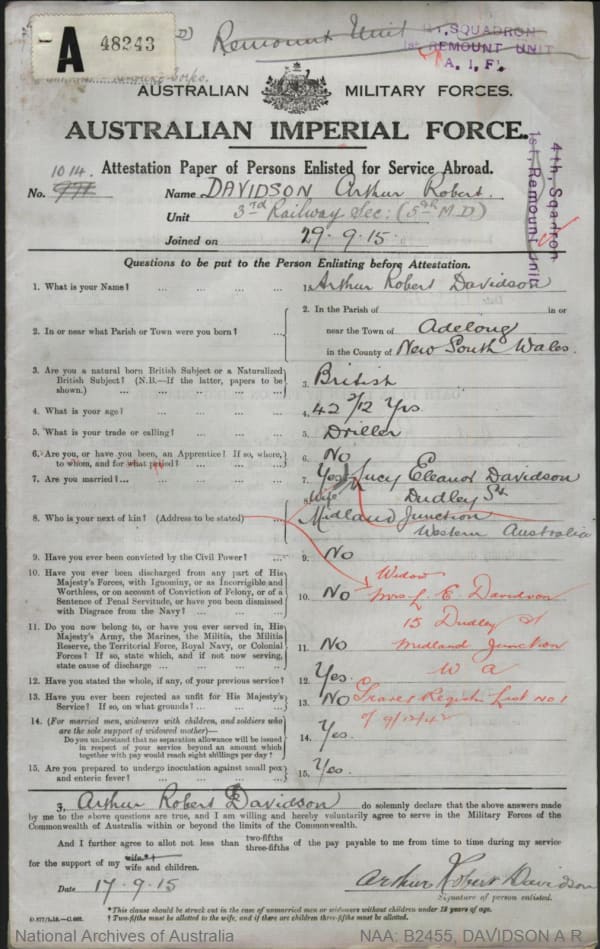 A 48243
Remount Unit
1st, SQUADRON
1st REMOUNT UNIT
A. I. F.
AUSTRALIAN MILITARY FORCES.
AUSTRALIAN IMPERIAL FORCE.
Attestation Paper of Persons Enlisted for Service Abroad.
4th, Sqadron
1st, Remount Unit
No. 1014. Name DAVIDSON Arthur Robert.
Unit 3rd Railway Sec: (5th M.D)
Joined on 29.9.15.
Questions to be put to the Person Enlisting before Attestation.
1. What is your Name? ... ... ... ... 1. Arthur Robert Davidson
2. In or near what Parish or Town were you born? ...
2. In the Parish of in or
near the Town of Adelong
in the County of New South Wales.
3. Are you a natural born British Subject or a Naturalized
British Subject? (N.B.—If the latter, papers to be
shown.) ... ... ... ... ...
3. British
4. What is your age? ... ... ... ... 4. 42 2/12 Yrs.
5. What is your trade or calling? ... ... ... 5. Driller
6. Are you, or have you been, an Apprentice? If so, where,
to whom, and for what period? ... ... ...
6. No
7. Are you married? ... ... ... ... 7. Yes
8. Who is your next of kin? (Address to be stated)
8. Wife Lucy Eleanor Davidson
Dudley St
Midland Junction
Western Australia
9. Have you ever been convicted by the Civil Power? ... 9. No
10. Have you ever been discharged from any part of His
Majesty's Forces, with Ignominy, or as Incorrigible and
Worthless, or on account of Conviction of Felony, or of a
Sentence of Penal Servitude, or have you been dismissed
with Disgrace from the Navy? ... ... ...
10. No
Widow
Mrs L. E. Davidson
15 Dudley St
Midland Junction
W A
11. Do you now belong to, or have you ever served in, His
Majesty's Army, the Marines, the Militia, the Militia
Reserve, the Territorial Force, Royal Navy, or Colonial
Forces? If so, state which, and if not now serving,
state cause of discharge ... ... ... ...
11. No
12. Have you stated the whole, if any, of your previous service? 12. Yes.
13. Have you ever been rejected as unfit for His Majesty's
Service? If so, on what grounds? ... ... ...
13. No
Graves Register List No 1
of 9/12/42
14. (For married men, widowers with children, and soldiers who
are the sole support of widowed mother)—
Do you understand that no separation allowance will be issued
in respect of your service beyond an amount which
together with pay would reach eight shillings per day?
14. Yes.
15. Are you prepared to undergo inoculation against small pox
and enteric fever? ... ... ... ...
15. Yes.
I, Arthur Robert Davidson do solemnly declare that the above answers made
by me to the above questions are true, and I am willing and hereby voluntarily agree to serve in the Military Forces of the
Commonwealth of Australia within or beyond the limits of the Commonwealth.
And I further agree to allot not less than two-fifths
three-fifths of the pay payable to me from time to time during my service
for the support of my wife*†
wife and children.
Date 17.9.15
Arthur Robert Davidson
Signature of person enlisted.
*This clause should be struck out in the case of unmarried men or widowers without children under 18 years of age.
† Two-fifths must be allotted to the wife, and if there are children three-fifths must be allotted.
National Archives of Australia
NAA: B2455, DAVIDSON A R